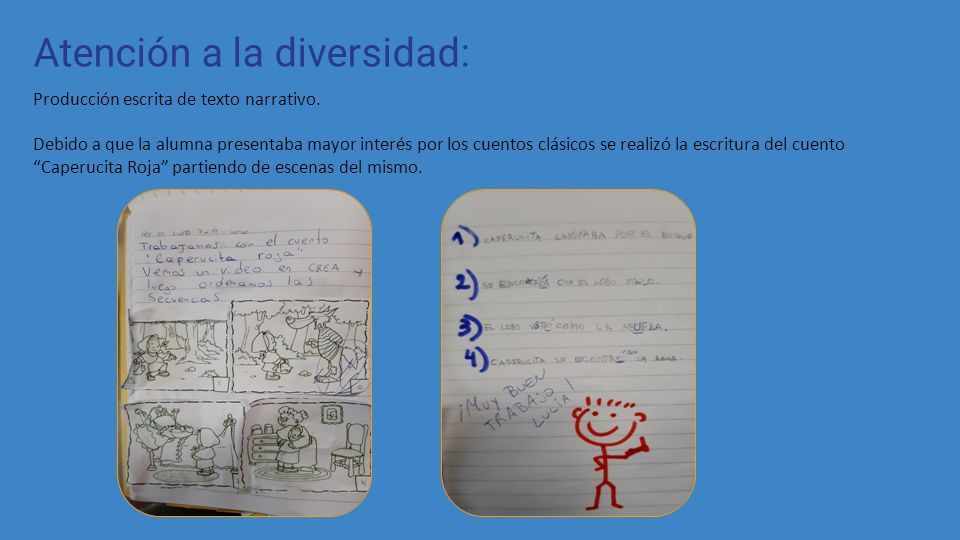 Atención a la diversidad:
Producción escrita de texto narrativo.
Debido a que la alumna presentaba mayor interés por los cuentos clásicos se realizó la escritura del cuento
“Caperucita Roja” partiendo de escenas del mismo.
Trabajamos con el cuento
"Caperucita roja"
Vemos un video en CREA y
luego ordenamos las
secuencias
1) CAPERUCITA CAMINABA POR EL BOSQUE
2) SE ENCONTRÓ CON EL LOBO MALO.
3) EL LOBO VISTIÓ COMO LA ABUELA.
4) CAPERUCITA SE ENCONTRÓ CON LA
¡MUY BUEN
TRABAJO!
LUCÍA